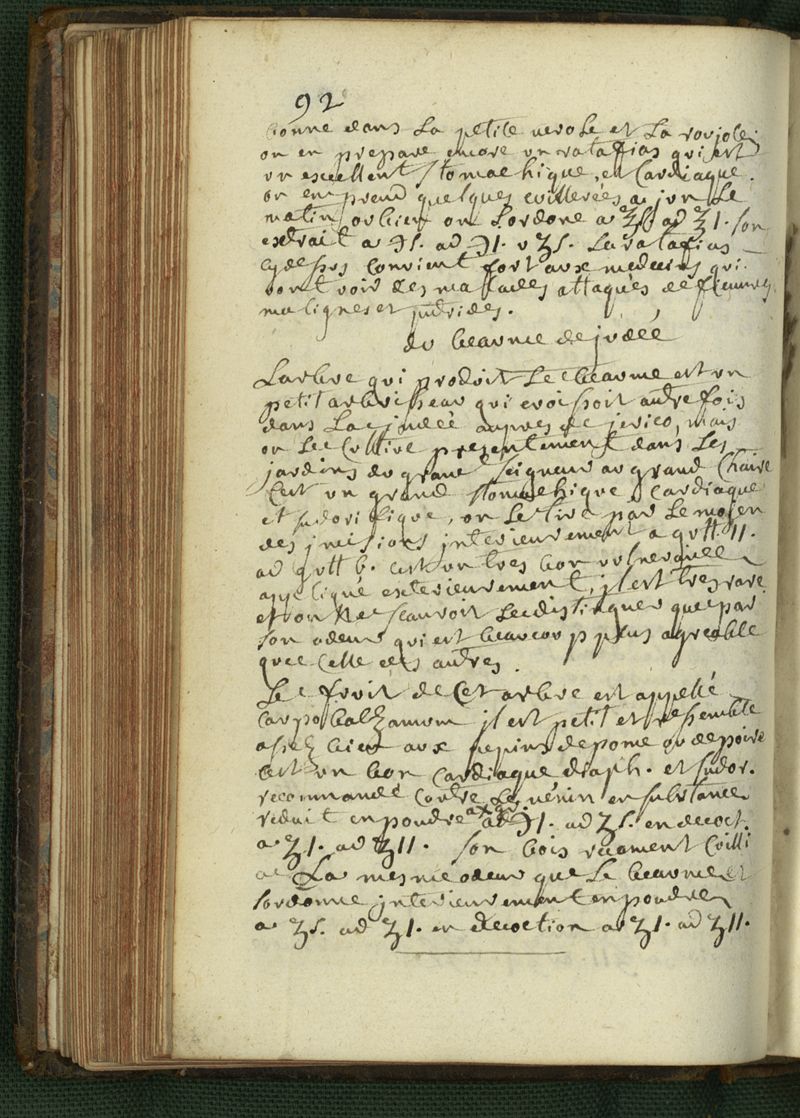 92
bonne dans La petite verole et La rovjole.
on en prepare encore vn rataffias qui est
vn excellent stomachique, et Cardiaque.
on en prend quelques cvillerées a jvn Le
matin ov bien on Lordone a ʒſ. ad ʒ1. son
extrait a ℈ſ. ad ℈1. v ʒſ. La rataffias
cydessvs convient fort avx medecins qvi
vont voir des malades attaqvés de fieuvres
malignes et pvtrides.
dv beavme de jvdéé
Larbre qvi prodvit Le beavme est vn
petit arbrisseav qvi croissoit avtrefois
dans La jvdéé avpres de jerico, mais
on Le Cvltive presentement dans Les
jardins dv grand seignevr av grand Chaire
Cest vn grand stomachiqve, Cardiaqve
et svdorifiqve, on Le tire par Le moien
des jncisions jnterievrement a gvtt. 11.
ad gvtt 6. cest vn tres bon vvlneraire
appliqvé exterievrement, jl est tres rare
et on Ne scavroit Le distingver qve par
son odevr qvi est beavcovp plvs agreable
qve Celle des avtres.
Le frvit de Cet arbre est appellé
Carpobalzamvm jl est petit et resemble
assez bien avx pepins de pome ov de poire
cest vn bon Cardiaqve diaph. et svdor.
recommandé Contre Le vénin en svbstance
redvit en povdre a ℈1. ad ʒſ. en decoct.
a ʒ1. ad ʒ11. son bois recament Cvilli
a La mesme odevr qve Le beavme et
sordonne jnterievrement en povdre
a ʒſ. ad ʒ1. en decoction a ʒ1. ad ʒ11.